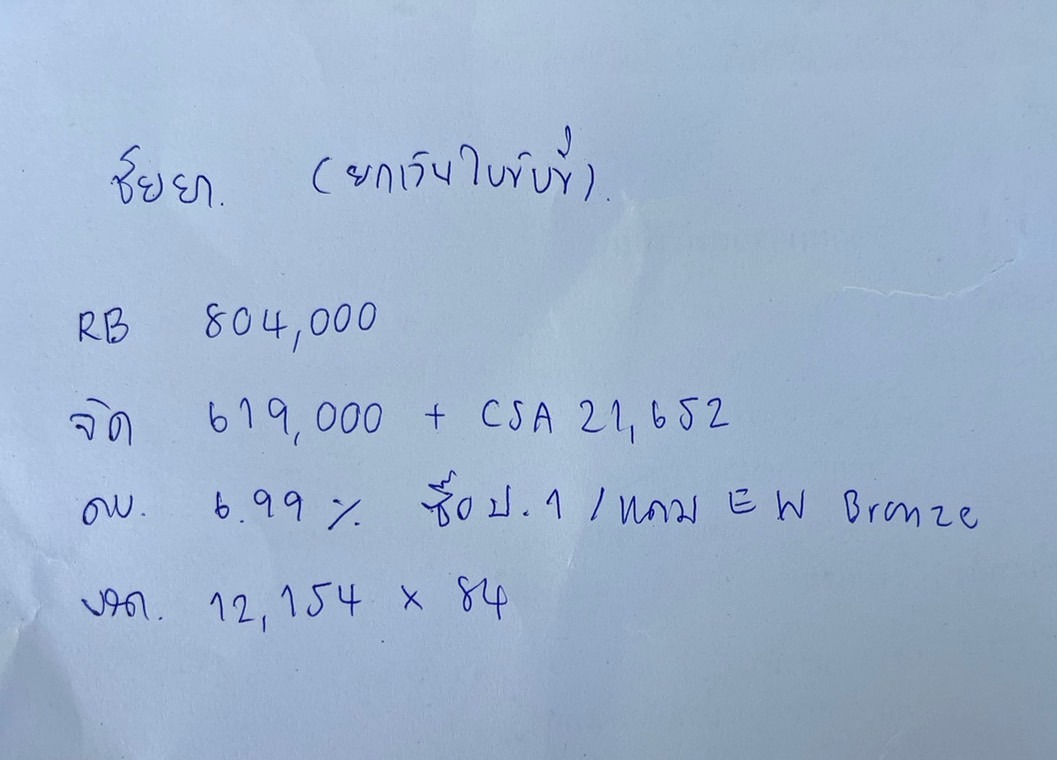 ชัยยา. (ยกเว้นใบขับขี่).
RB 804,000
จัด 619,000 + CSA 21,652
ดบ. 6.99 % ซื้อ ป.1 / แถม EW Bronze
งวด. 12,154 x 84